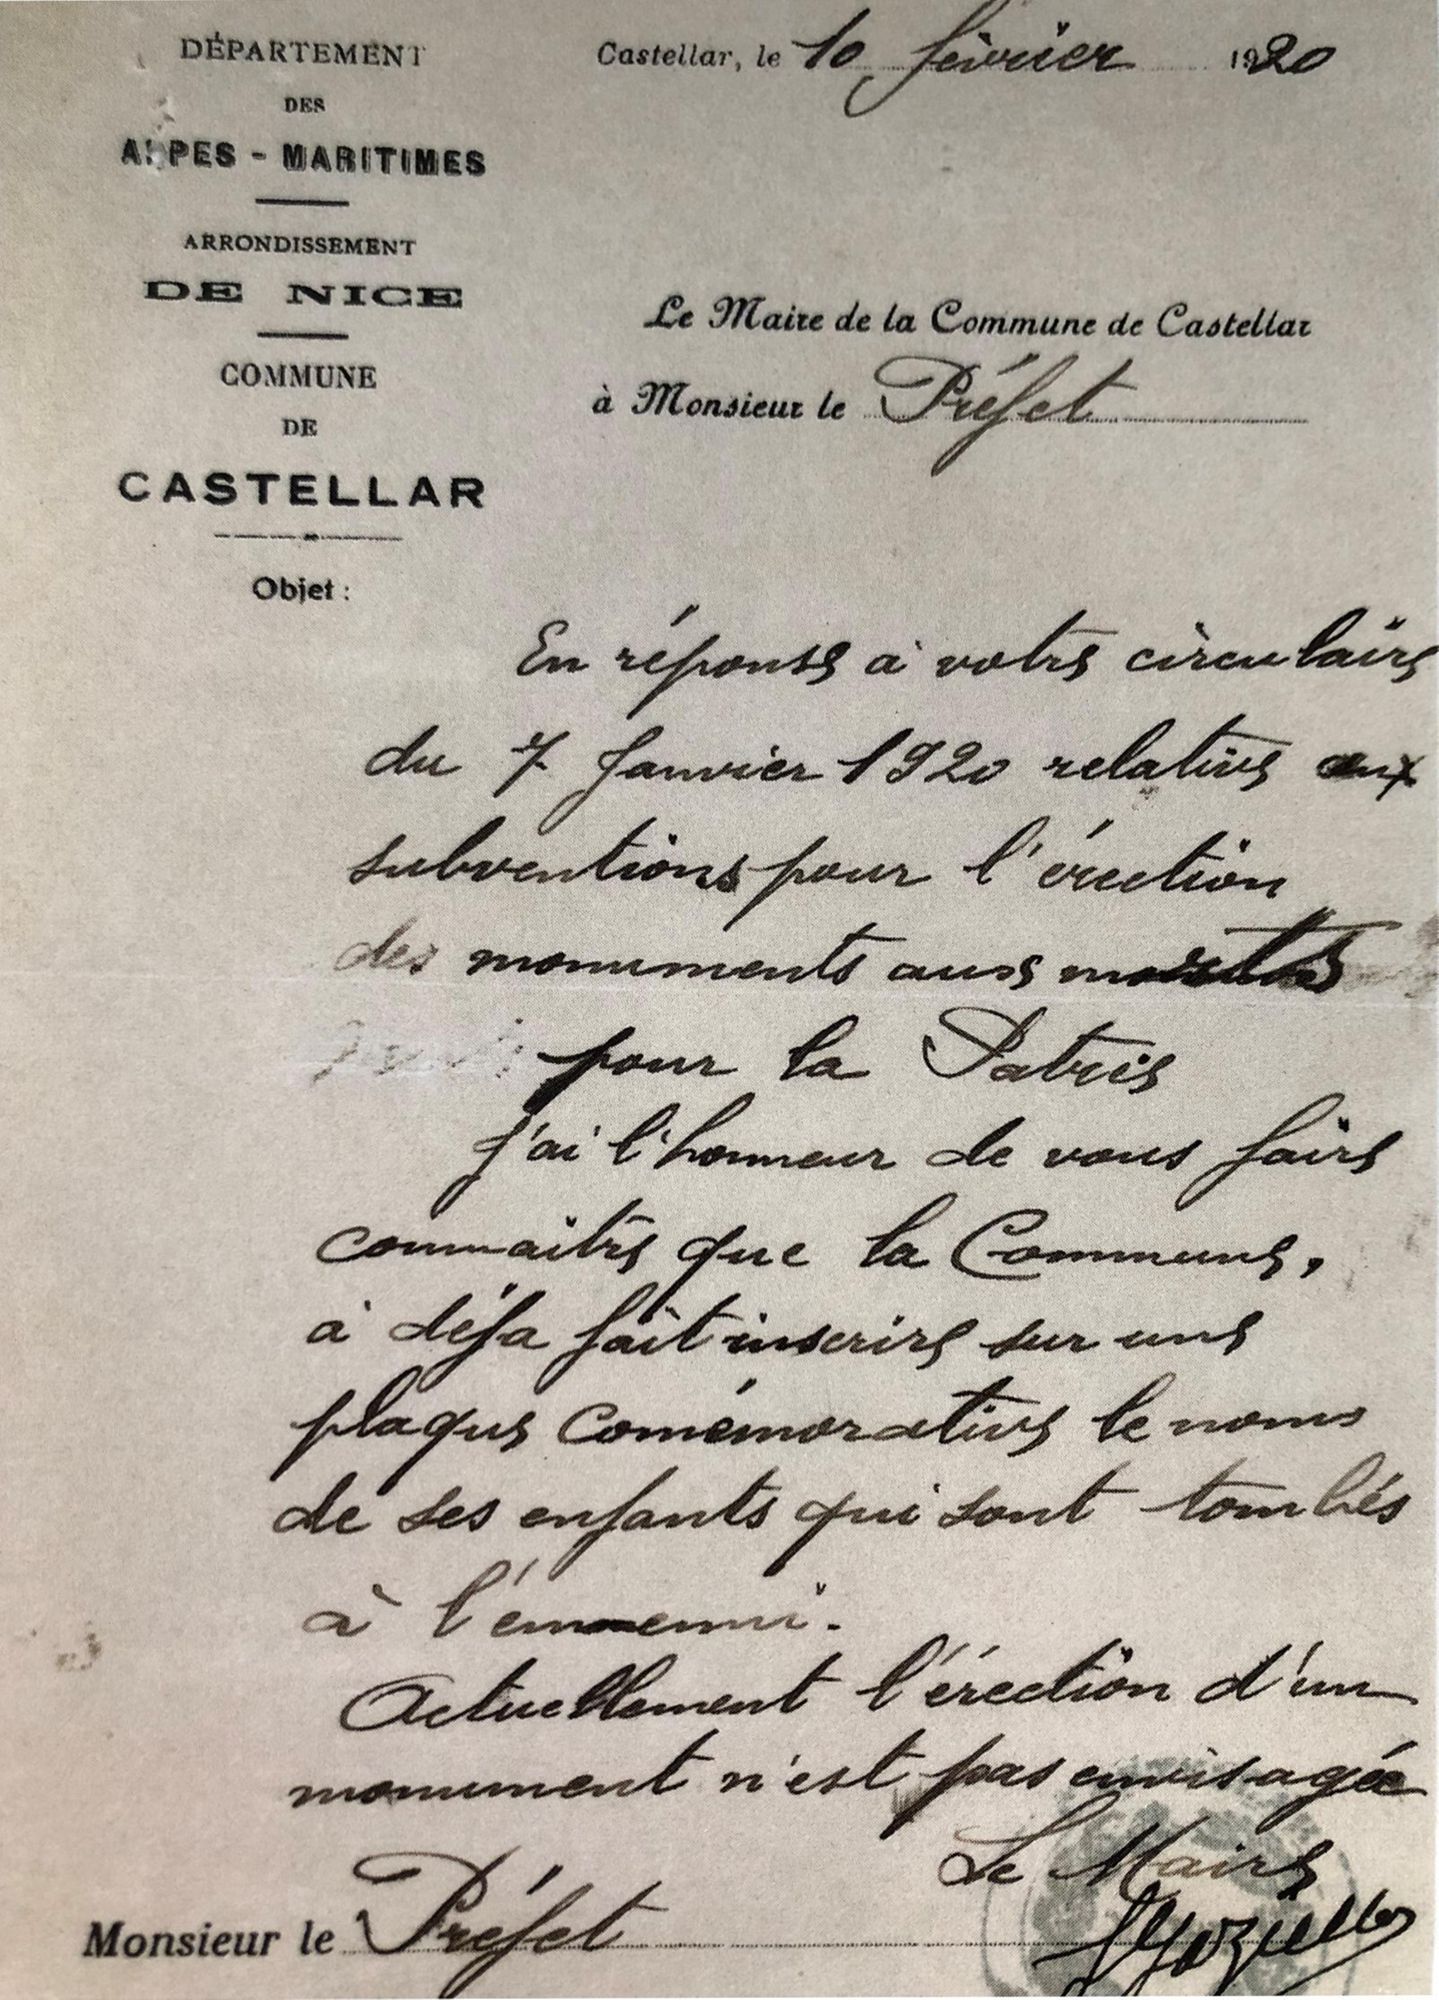 DÉPARTEMENT
DES
ALPES - MARITIMES
ARRONDISSEMENT
DE NICE
COMMUNE
DE
CASTELLAR
Objet :
Castellar, le 10 février 1920
Le Maire de la Commune de Castellar
à Monsieur le Préfet
En réponse à votre circulaire
du 7 Janvier 1920 relative aux
subventions pour l'érection
des monuments aux morts
pour la Patrie
j'ai l'honneur de vous faire
connaître que la Commune,
à déja fait inscrire sur une
plaque comémorative le noms
de ses enfants qui sont tombés
à l'ennemi.
Actuellement l'érection d'un
monument n'est pas envisagée
Le Maire
Monsieur le Préfet